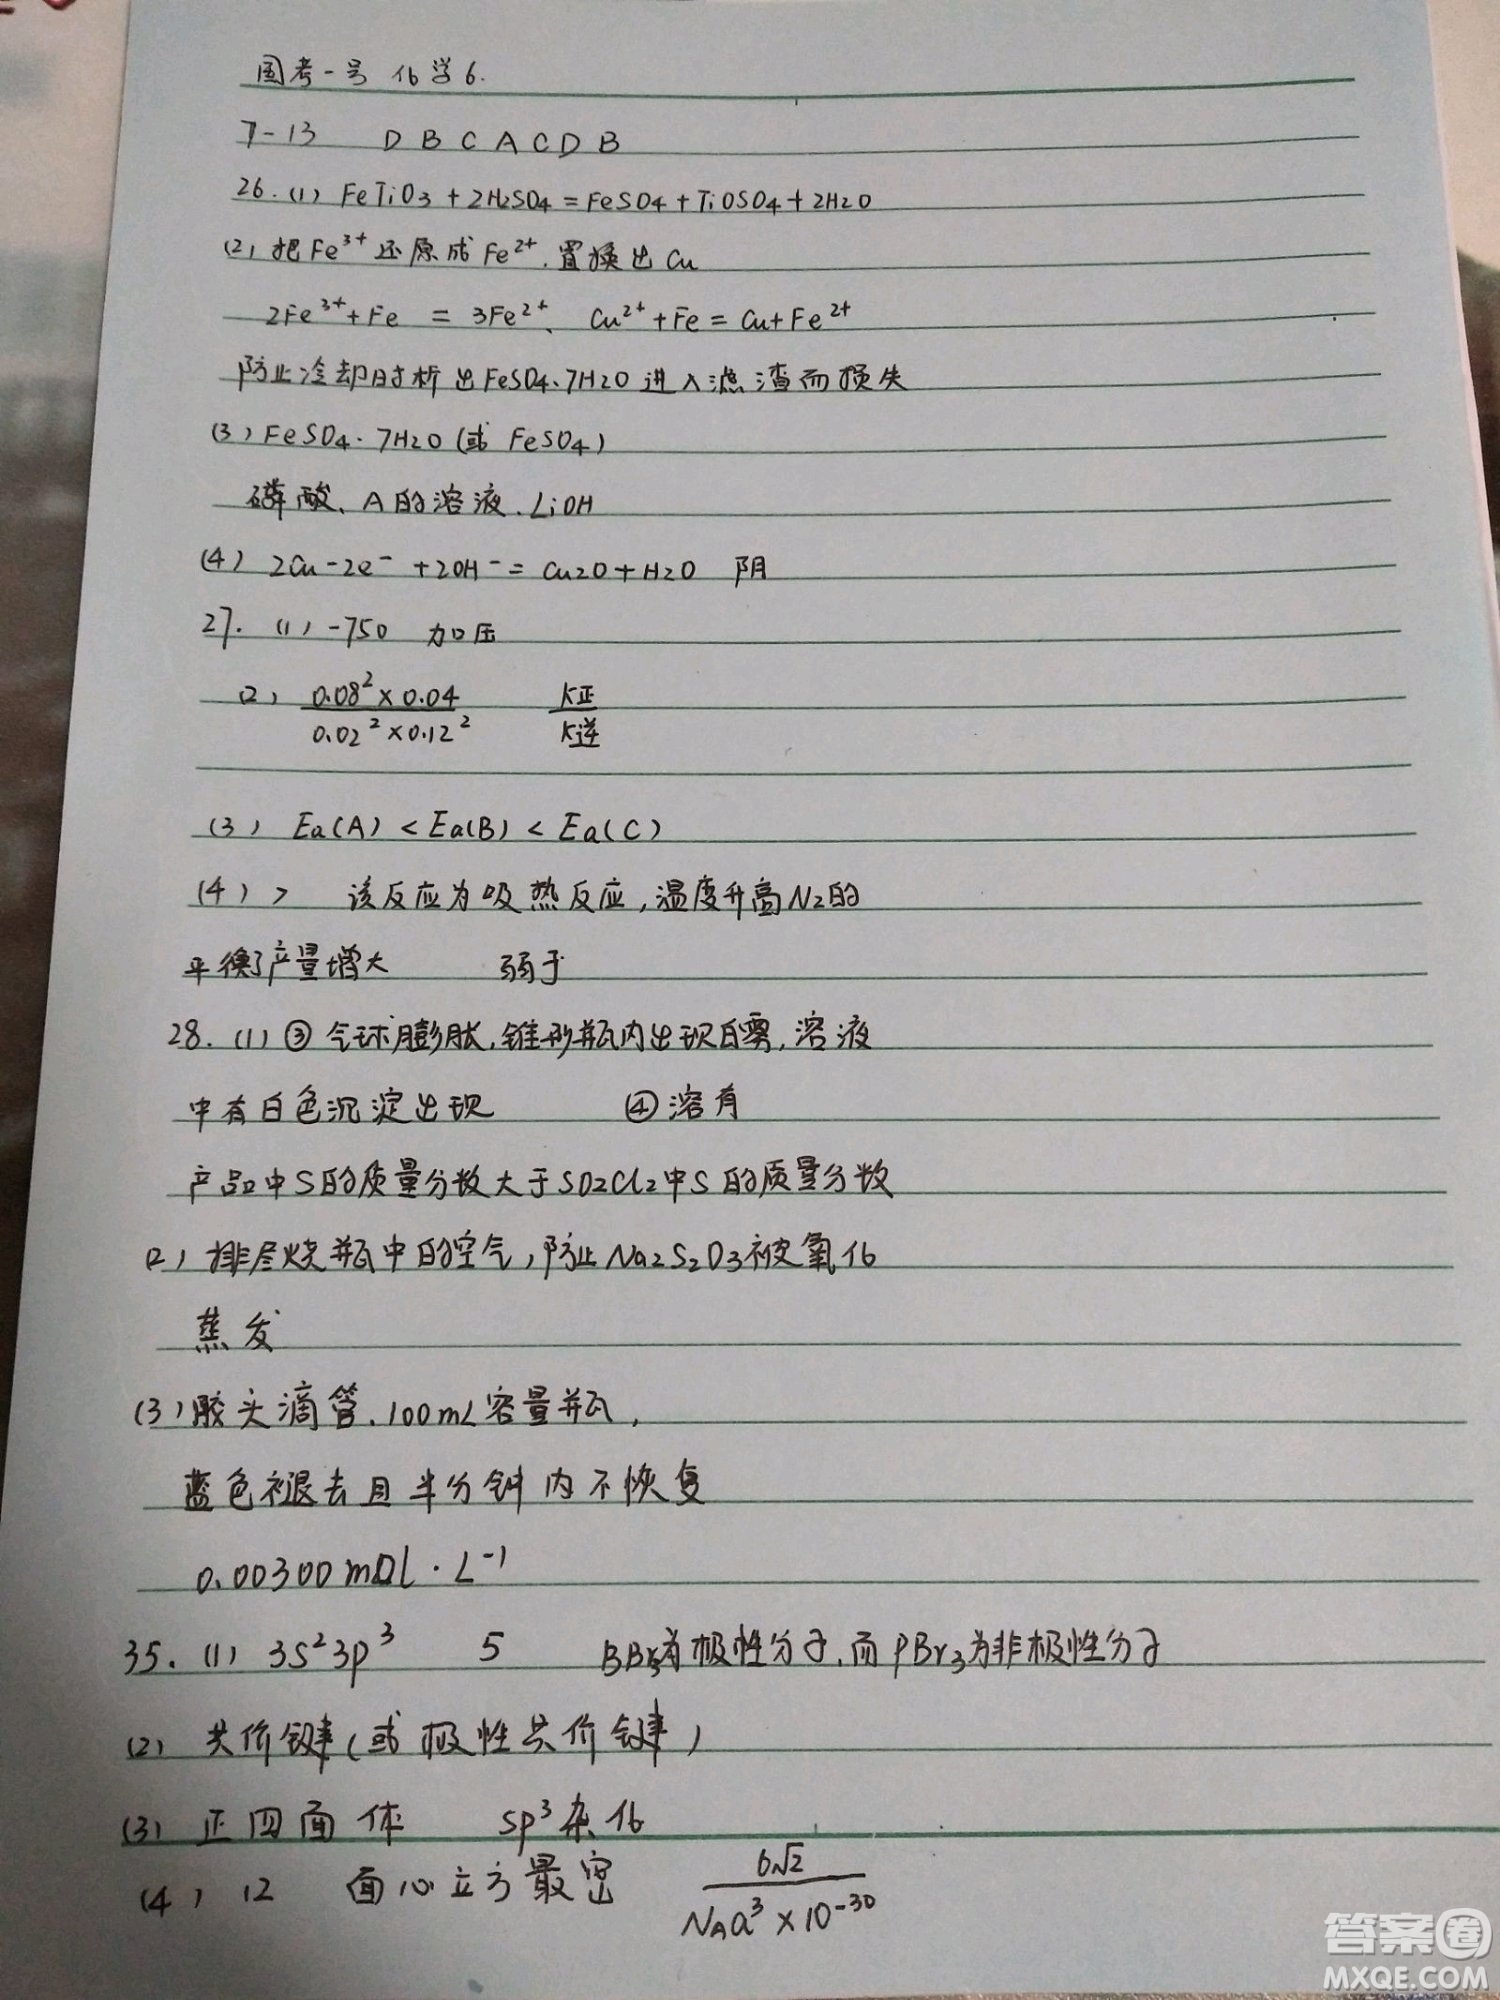 国考一号 化学6.
7-13 D B C A C D B
26.(1) FeTiO3+2H2SO4=FeSO4+TiOSO4+2H2O
(2) 把Fe³⁺还原成Fe²⁺.置换出Cu
2Fe³⁺+Fe = 3Fe²⁺、 Cu²⁺+Fe=Cu+Fe²⁺
防止冷却时析出FeSO4·7H2O进入滤渣而损失
(3) FeSO4·7H2O(或 FeSO4)
磷酸、A的溶液.LiOH
(4) 2Cu-2e⁻+2OH⁻=Cu2O+H2O 阴
27. (1) -750 加压
(2) 0.08²×0.04 / 0.02²×0.12² K正 / K逆
(3) Ea(A)<Ea(B)<Ea(C)
(4) > 该反应为吸热反应,温度升高N2的
平衡产量增大 弱于
28.(1)③气球膨胀,锥形瓶内出现白雾,溶液
中有白色沉淀出现 ④溶有
产品中S的质量分数大于SO2Cl2中S的质量分数
(2) 排尽烧瓶中的空气,防止Na2S2O3被氧化
蒸发
(3)胶头滴管、100mL容量瓶,
蓝色褪去且半分钟内不恢复
0.00300mol·L⁻¹
35.(1) 3s²3p³ 5 BBr3为极性分子,而PBr3为非极性分子
(2) 共价键(或极性共价键)
(3) 正四面体 sp³杂化
(4) 12 面心立方最密 6√2 / NAa³×10⁻³⁰
答案圈
MXQE.COM